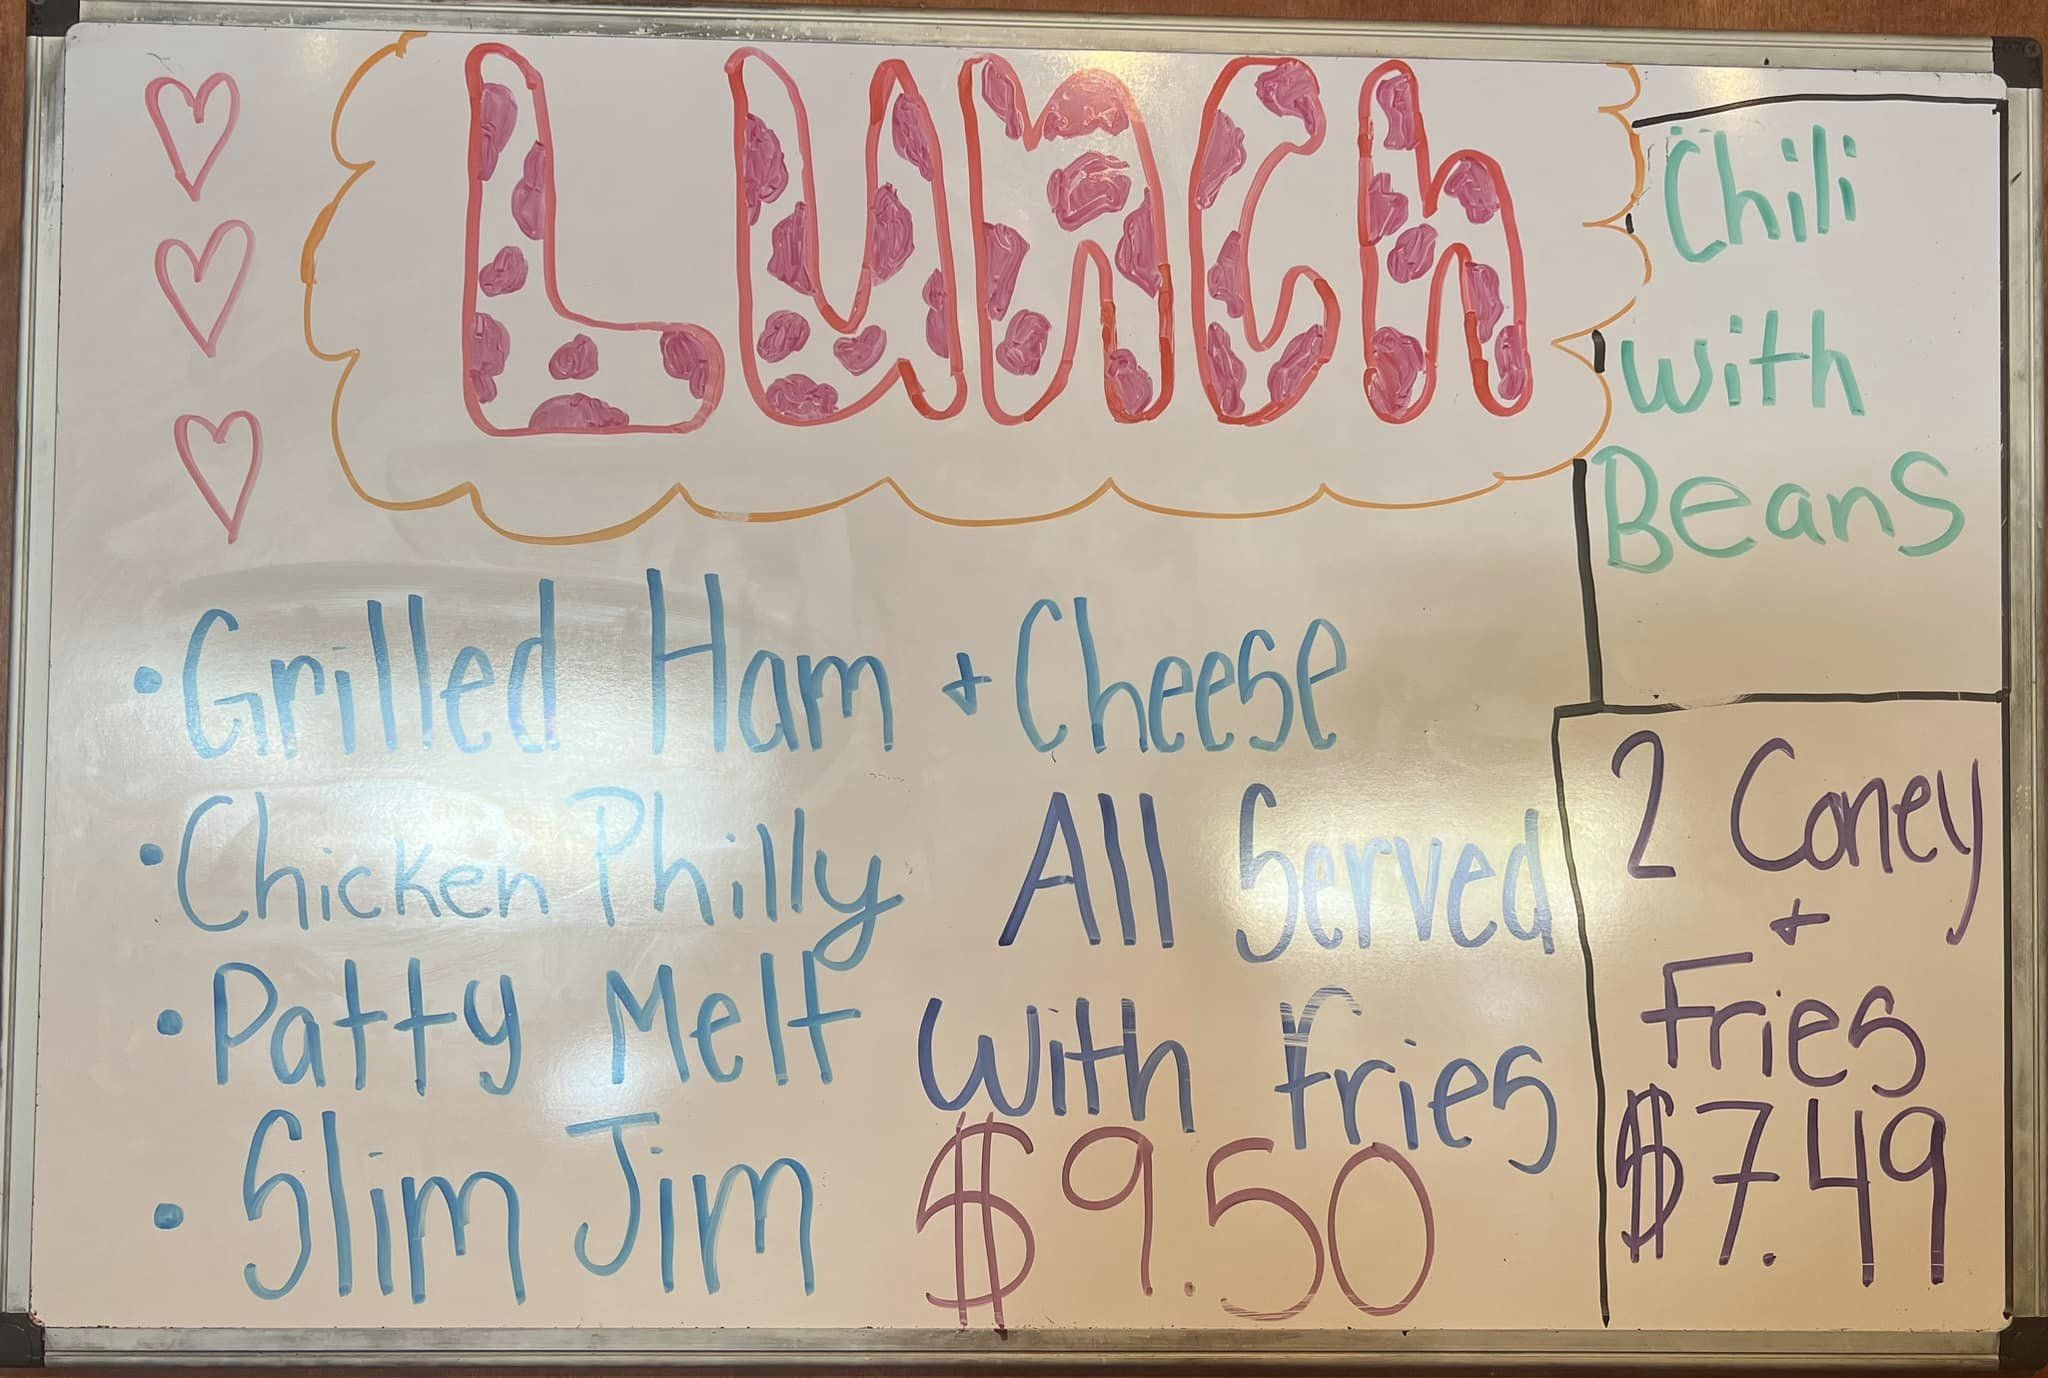 Lunch
• Grilled Ham + Cheese
• Chicken Philly
• Patty Melt
• Slim Jim
All Served
With Fries
$9.50
Chili
with
Beans
2 Coney
+
Fries
$7.49